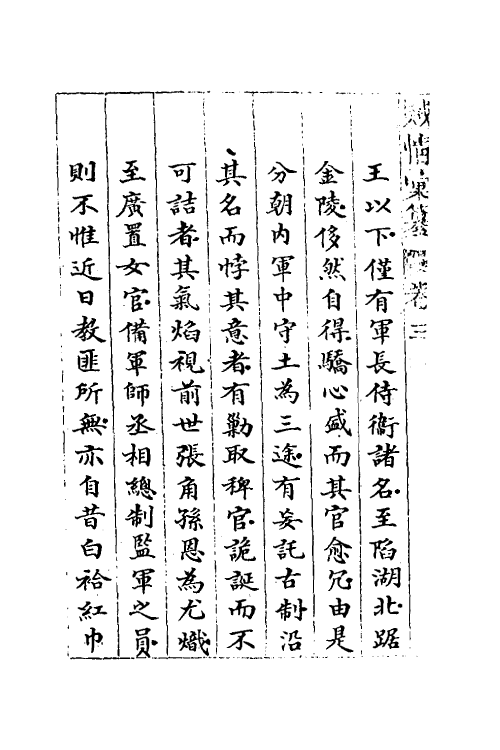 賊情彙纂 卷三
王以下僅有軍長侍衞諸名至陷湖北踞
金陵侈然自得驕心盛而其官愈冗由是
分朝內軍中守土為三途有妄託古制沿
其名而悖其意者有勦取稗官詭誕而不
可詰者其氣焰視前世張角孫恩為尤熾
至廣置女官備軍師丞相總制監軍之員
則不惟近日教匪所無亦自昔白袷紅巾